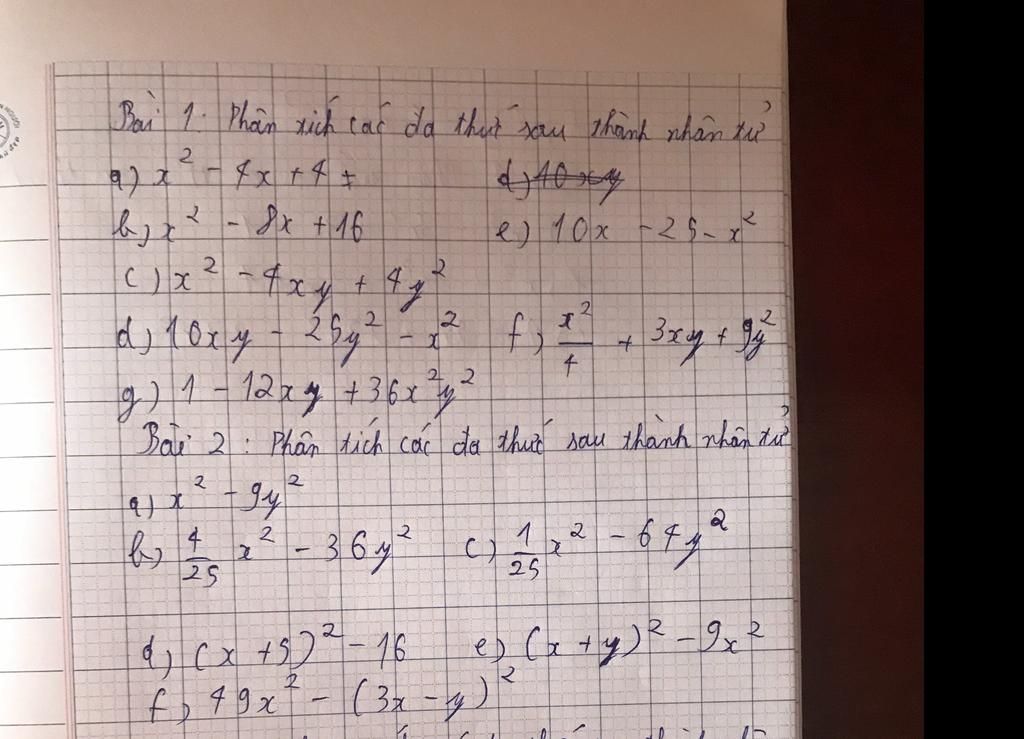 Bài 1. Phân tích các đa thức sau thành nhân tử
a) x² - 4x + 4
b) x² - 8x + 16 e) 10x - 25 - x²
c) x² - 4xy + 4y²
d) 10xy - 25y² - x² f) x²/4 + 3xy + 9y²
g) 1 - 12xy + 36x²y²
Bài 2 : Phân tích các đa thức sau thành nhân tử
a) x² - 9y²
b) 4/25 x² - 36y² c) 1/25 x² - 64y²
d) (x + 5)² - 16 e) (x + y)² - 9x²
f) 49x² - (3x - y)²